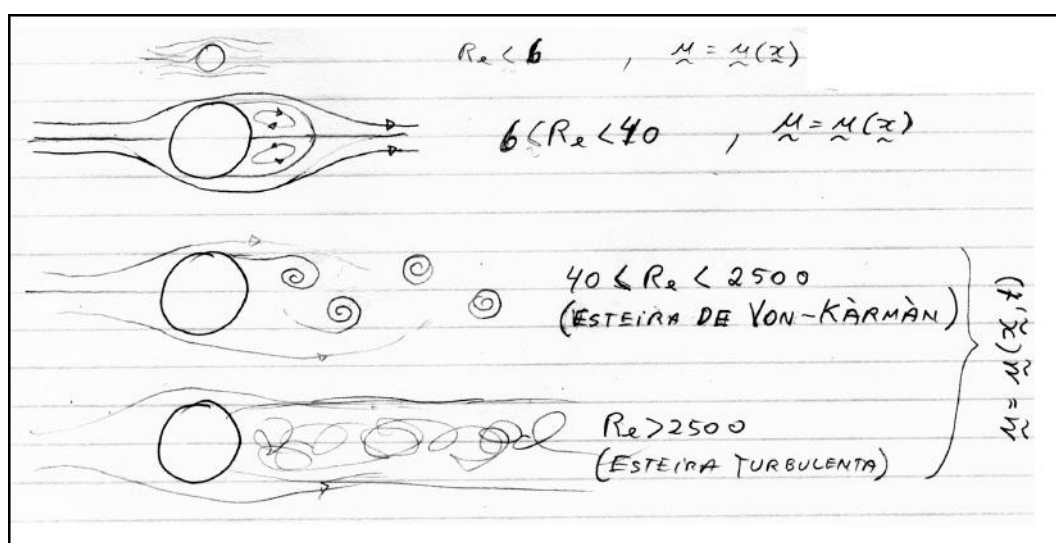 Re < 6 , u = u(x)
6 < Re < 40 , u = u(x)
40 ≤ Re < 2500
(ESTEIRA DE VON-KÀRMÀN)
Re > 2500
(ESTEIRA TURBULENTA)
u = u(x, t)